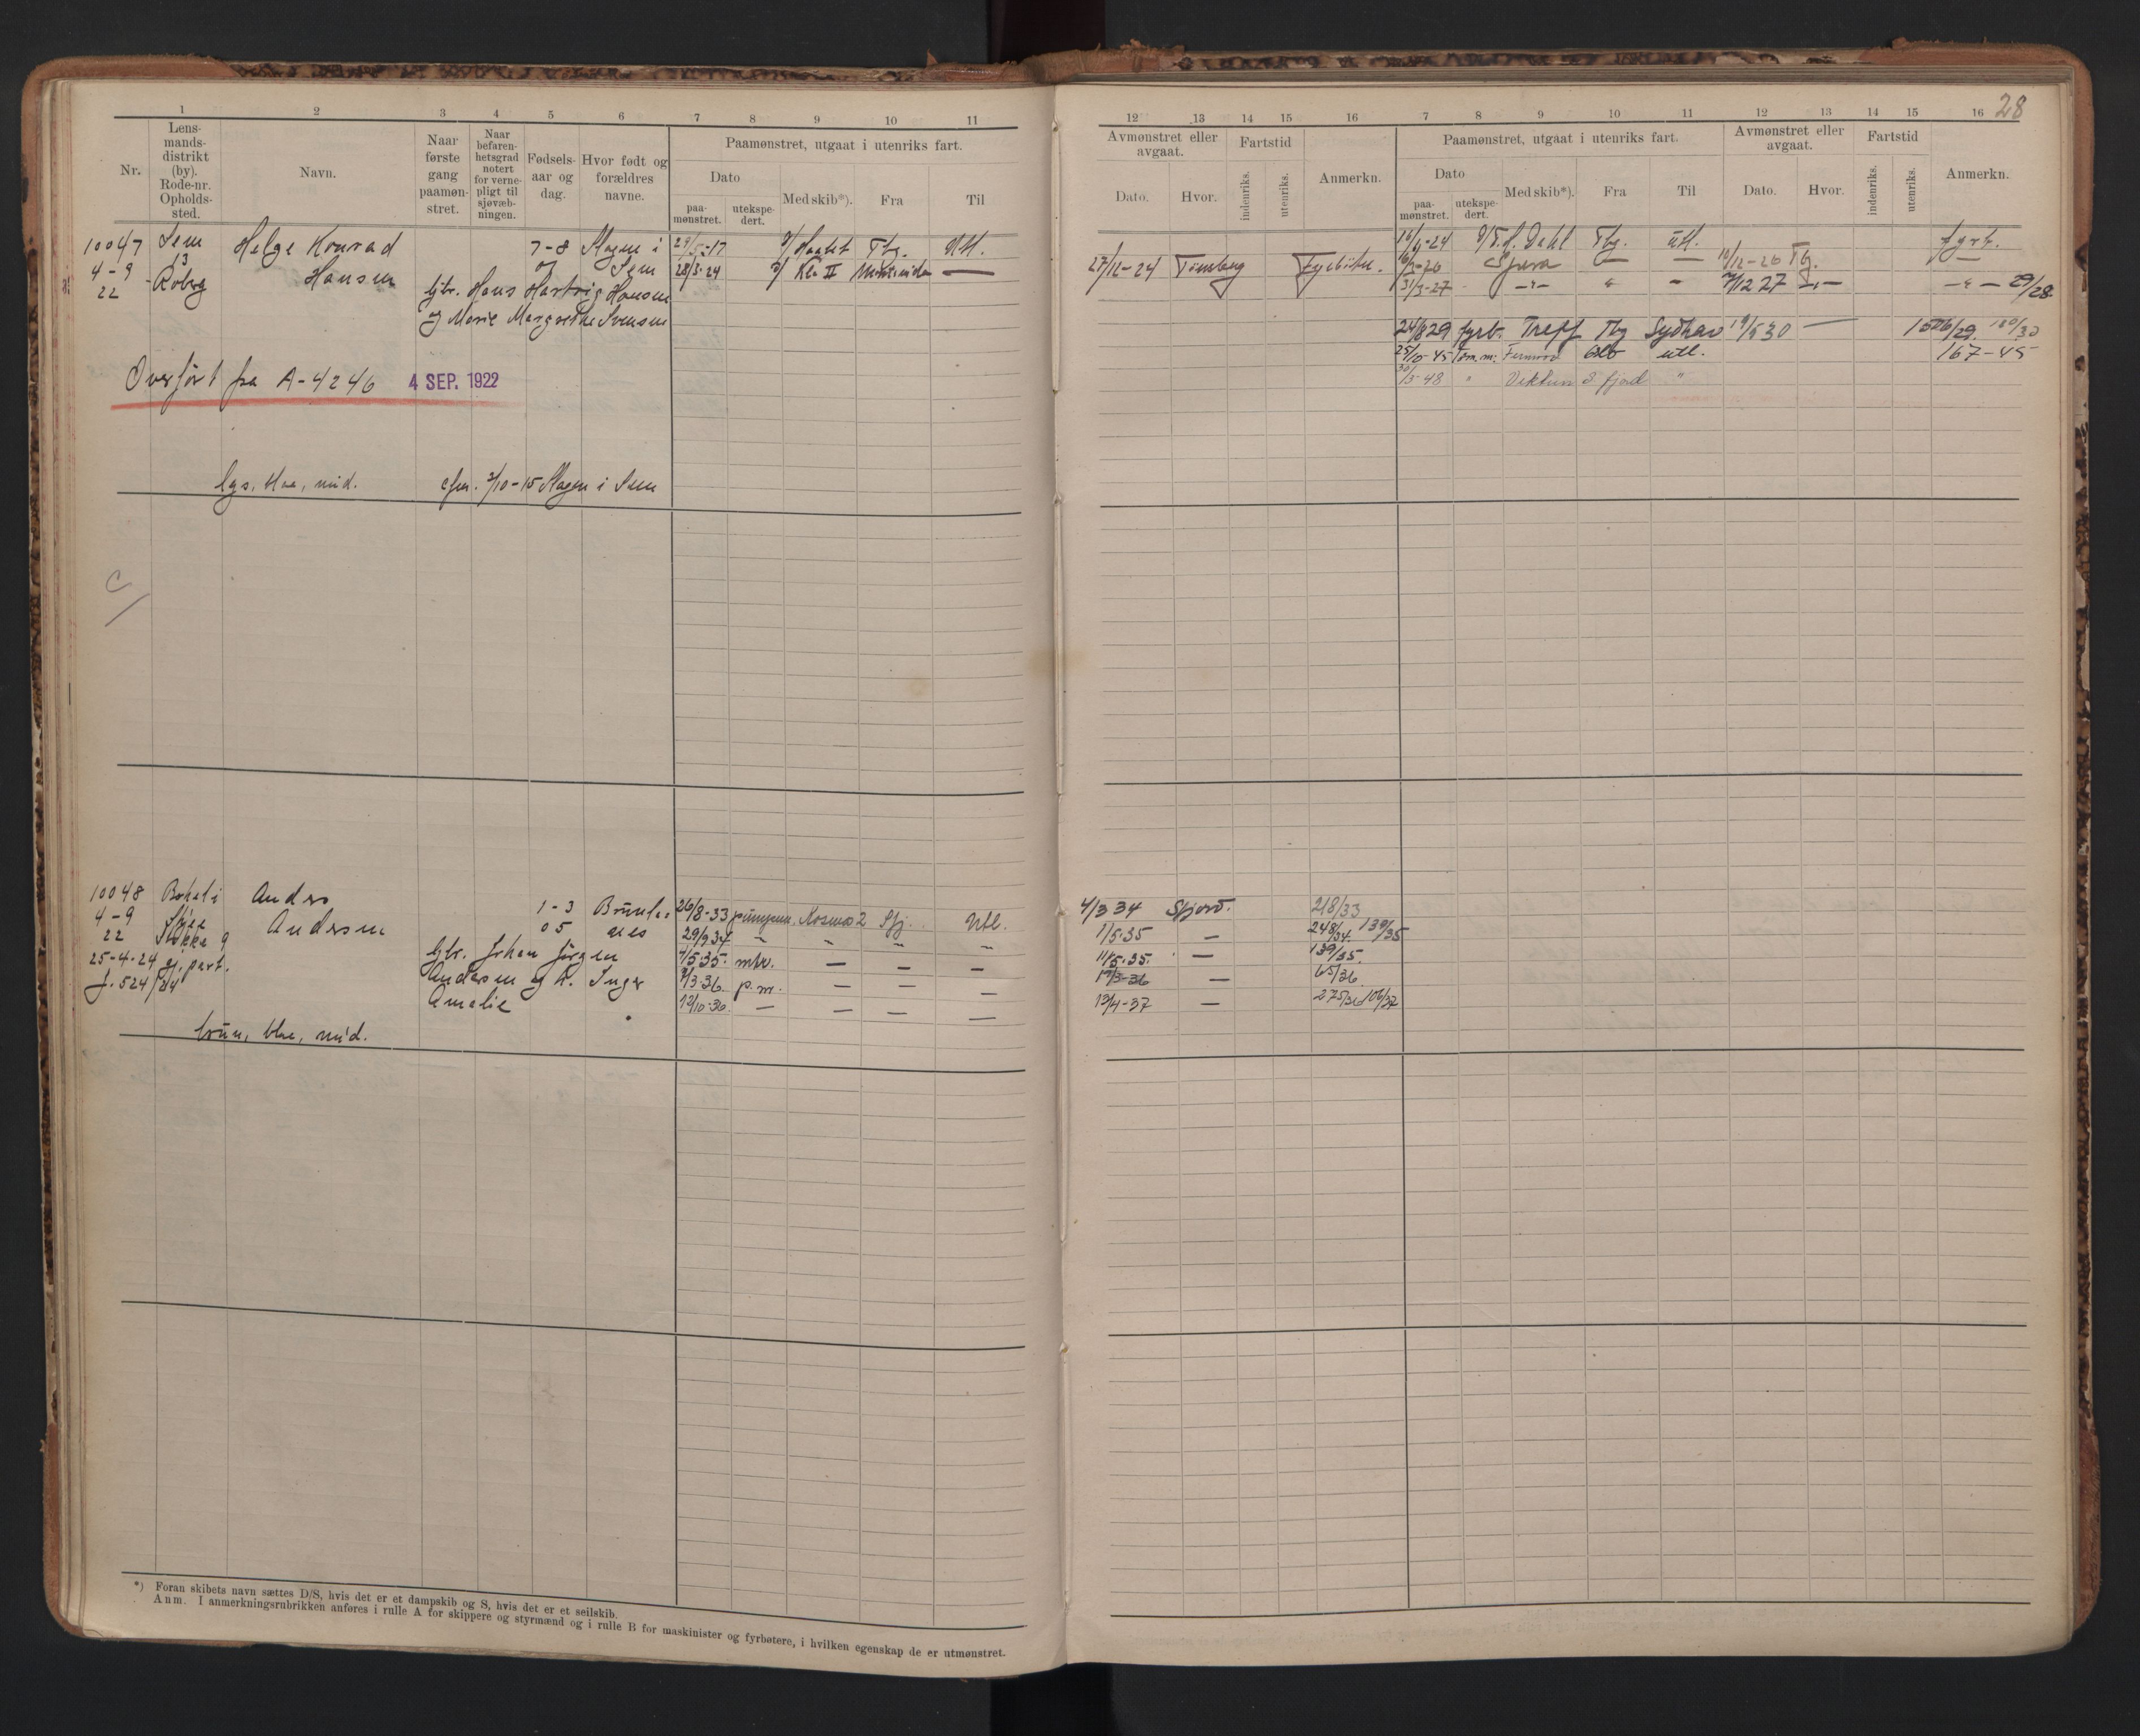 28
1 2 3 4 5 6 7 8 9 10 11
Nr.
Lens-
mands-
distrikt
(by).
Rode-nr.
Opholds-
sted.
Navn.
Naar
første
gang
paamøn-
stret.
Naar
befaren-
hetsgrad
notert
for verne-
pligt til
sjøvæb-
ningen.
Fødsels-
aar og
dag.
Hvor født og
forældres
navne.
Paamønstret, utgaat i utenriks fart.
Dato
paa-
mønstret.
utekspe-
dert.
Med skib*).
Fra
Til
10047 Sem Helge Konrad 7-8 Slagen i 29/5-17 Tbg. Utl.
4-9 13 Hansen og Sem 28/3-24 Kla II —
22 Roberg
fjtr. Hans Hartvig Hansen
og Marie Margrethe Svensen
Overført fra A-4246 4 SEP. 1922
lys, blaa, mid. efm. 2/10-15 Slagen i Sem
10048 Anders 1-3 Brunla- 26/8-33 Kosmos 2 Sfj. Utl.
4-9 Andersen 05 nes 29/9 34 — „ — —
22 Stokke 9 fjtr. Johan Jørgen 4/5 35. mtr. — — —
25-4-24 gj. part. Andersen og h. Inger 9/3-36. p.m. — — —
J. 524/24 Amalie 12/10-36. — — — —
brun, blaa, mid.
*) Foran skibets navn sættes D/S, hvis det er et dampskib og S, hvis det er et seilskib.
Anm. I anmerkningsrubrikken anføres i rulle A for skippere og styrmænd og i rulle B for maskinister og fyrbøtere, i hvilken egenskap de er utmønstret.
12 13 14 15 16 7 8 9 10 11 12 13 14 15 16
Avmønstret eller
avgaat.
Dato.
Hvor.
Fartstid
indenriks.
utenriks.
Anmerkn.
Paamønstret, utgaat i utenriks fart.
Dato
paa-
mønstret.
utekspe-
dert.
Med skib*).
Fra
Til
Avmønstret eller
avgaat.
Dato.
Hvor.
Fartstid
indenriks.
utenriks.
Anmerkn.
16/9-24 T. Dahl Tbg. Utl. fyrb.
27/12-24 Tønsberg Fyrbøter. Spera — — 10/12-26 Tbg. —
31/3-27 —„— „ — 7/12 27 —„— —„— 29/28.
24/8 29 fyrb. Treff Tbg Sydhav 19/5 30 — 156/29. 180/30
25/10-45 Oslo utl. 167-45
30/5-48 „ fjord „
4/3 34 Sfjord. 218/33
1/5-35 — 248/34. 139/35
11/5-35. — 139/35.
17/3-36 — 65/36
13/4-37 — 275/36 106/37